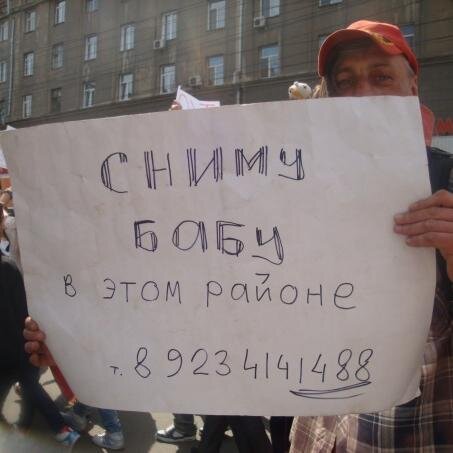 СНИМУ
БАБУ
в этом районе
т. 8 9234141488